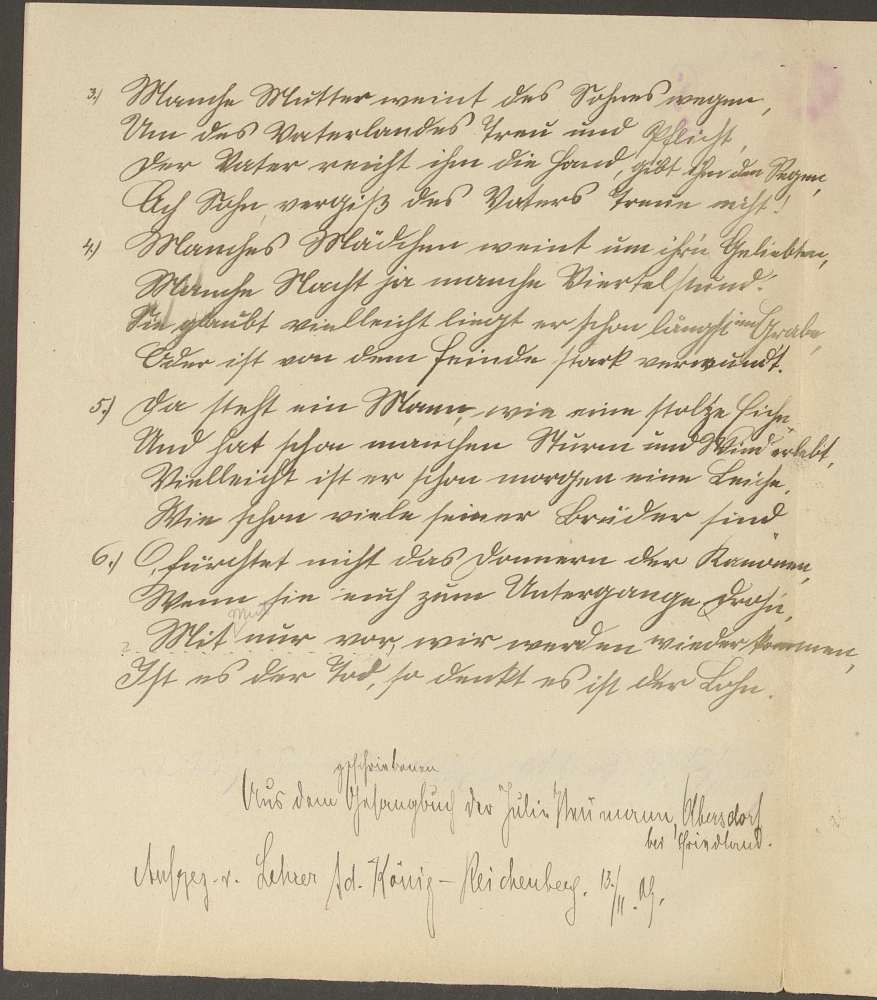 3.) Manche Mutter weint des Sohnes wegen,
Um des Vaterlandes Treu und Pflicht,
Der Vater reicht ihm die Hand, gibt ihm den Segen,
Ach Sohn, vergiß des Vaters Treue nicht!
4.) Manches Mädchen weint um ihr'n Geliebten,
Manche Nacht ja manche Viertelstund.
Sie glaubt vielleicht liegt er schon längst im Grabe,
Oder ist von dem Feinde stark verwundt.
5.) Da steht ein Mann, wie eine stolze Eiche,
Und hat schon manchen Sturm und Wind erlebt,
Vielleicht ist er schon morgen eine Leiche,
Wie schon viele seiner Brüder sind.
6.) O, fürchtet nicht das Donnern der Kanonen,
Wenn sie euch zum Untergange droh'n,
Mut
? Mit nur vor, wir werden wiederkommen,
Ist es der Tod, so denkt es ist der Lohn.
geschriebenen
Aus dem Gesangbuch der Julie Neumann,
bei Friedland.
Aufgez. v. Lehrer Ad. König – Reichenberg. 13./II. 09.